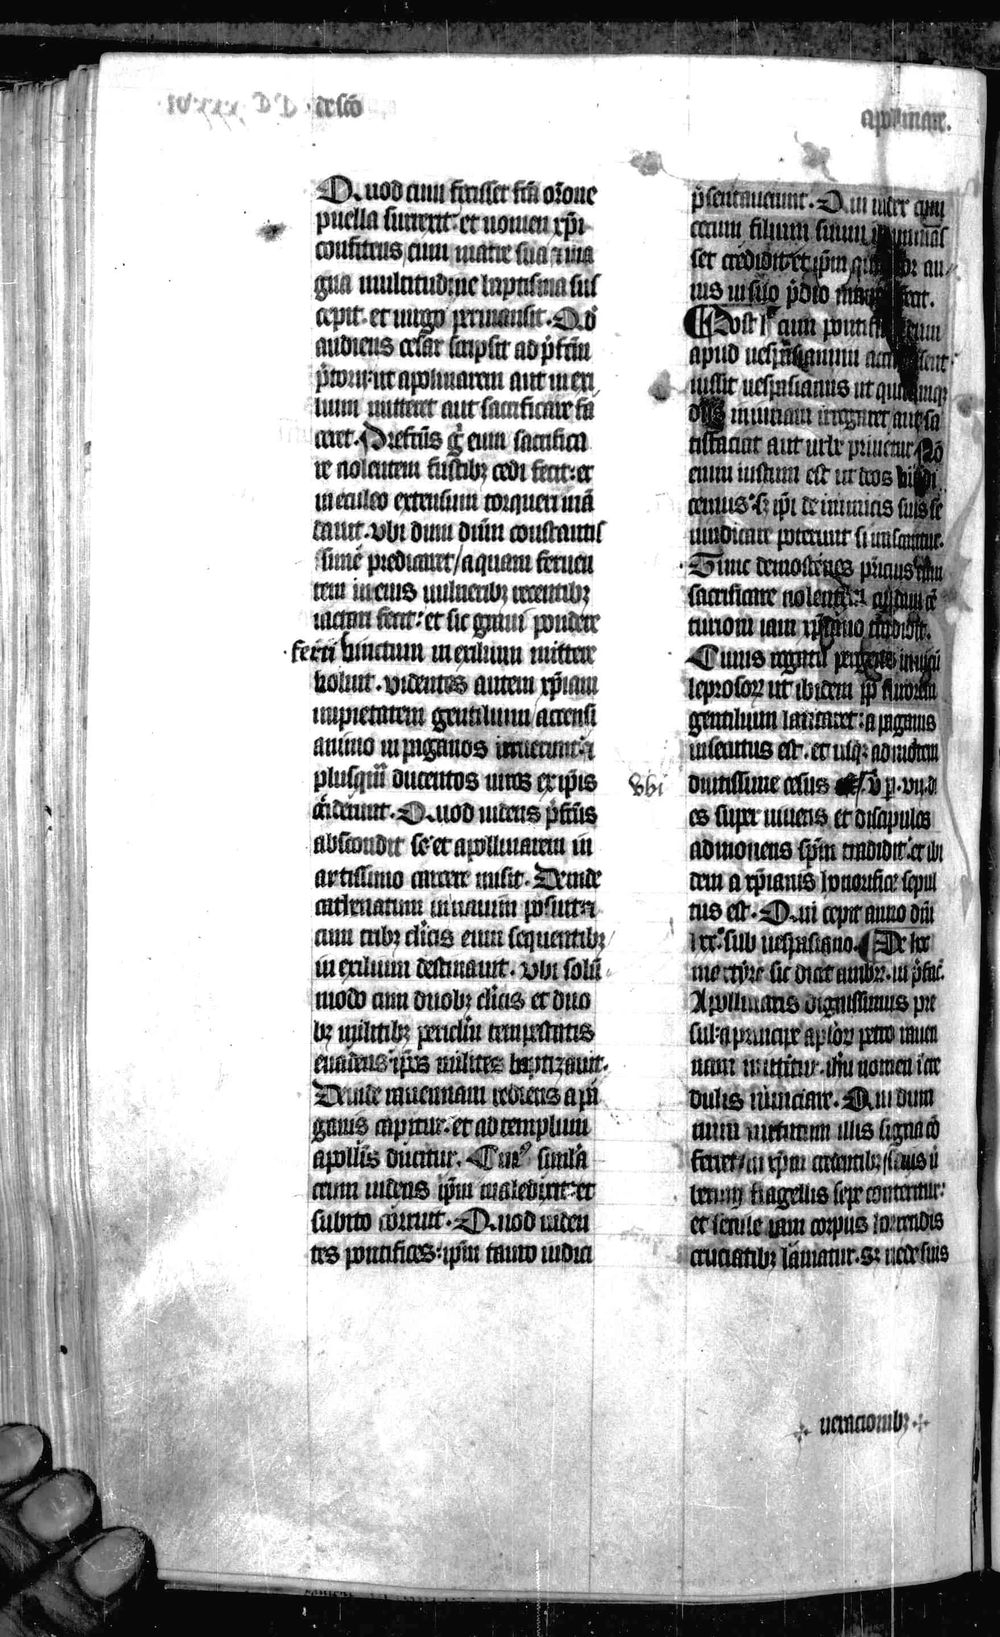 de scō
apollinare.
Quod cum fecisset fcā or̄one
puella surrexit· et nomen xp̄i
confitens cum matre sua ⁊ ma
gna multitudine baptisma sus
cepit· et uirgo permansit. Qđ
audiens cesar scripsit ad p̄fcm̄
p̄torii· ut apolinarem aut in exi
lium mitteret aut sacrificare fa
ceret. Prefcūs g̊ eum sacrifica
re nolentem fustibꝫ cedi fecit: et
in eculeo extensum torqueri mā
dauit. Vbi dum dūm constantis
sime predicaret/ aquam feruen
tem in eius uulneribꝫ recentibꝫ
iactari fecit: et sic graui pondere
ferri uinctum in exilium mittere
uoluit. Videntes autem xp̄iani
impietatem gentilium/ accensi
animo in paganos irruerunt· ⁊
plusqū ducentos uiros ex ip̄is
occiderunt. Quod uidens p̄fcūs
abscondit se· et apollinarem in
artissimo carcere misit. Deinde
cathenatum in nauim posuit· ⁊
cum tribꝫ clīcis eum sequentibꝫ
in exilium destinauit. Vbi solū
modo cum duobꝫ clīcis et duo
bꝫ militibꝫ periclm̄ tempestatis
euadens· ip̄os milites baptizauit.
Deinde rauennam rediens a pa
ganis capitur: et ad templum
apollīs ducitur. Cui⁹ simlā
crum uidens ip̄m maledixit: et
subito corruit. Quod uiden
tes pontifices: ip̄m tauro iudici
p̄sentauerunt. Qui iudex cum
cecum filium suum
set credidit· et ip̄m au
nis in suo p̄dio
Post h̄ cum
apud uespasianum
iussit uespasianus ut quicumqꝫ
diis iniuriam irrogaret/ aut sa
tisfaciat aut urbe priuetur. Nō
enim iustum est ut deos uindi
cemus· sꝫ ip̄i de inimicis suis se
uindicare poterunt si irascantur.
Tunc demostenes p̄ricius eum
sacrificare nolentem cuidam cē
turioni iam xp̄iano tradidit.
Cuius rogatu pergens in uicū
leprosorꝫ ut ibidem furorem
gentilium latitaret: a paganis
insecutus est. et usqꝫ ad mortem
diutissime cesus est. vbi p. vii. di
es super uiuens et discipulos
admonens sp̄m tradidit: et ibi
dem a xp̄ianis honorifice sepul
tus est. Qui cepit anno dn̄i
lxx.° sub uespasiano. De hoc
martyre sic dicit ambrꝰ. in p̄fac̄.
Apollinaris dignissimus pre
sul: a principe aplorꝫ petro rauen
nam mittitur· ihu nomen incre
dulis nunciare. Qui dum
mira uirtutum illis signa cō
ferret/ in xp̄m credentibꝫ/
flagellis sepe conteritur:
et senile iam corpus horrendis
cruciatibꝫ laniatur. Sꝫ ne de suis
ueracionibꝫ